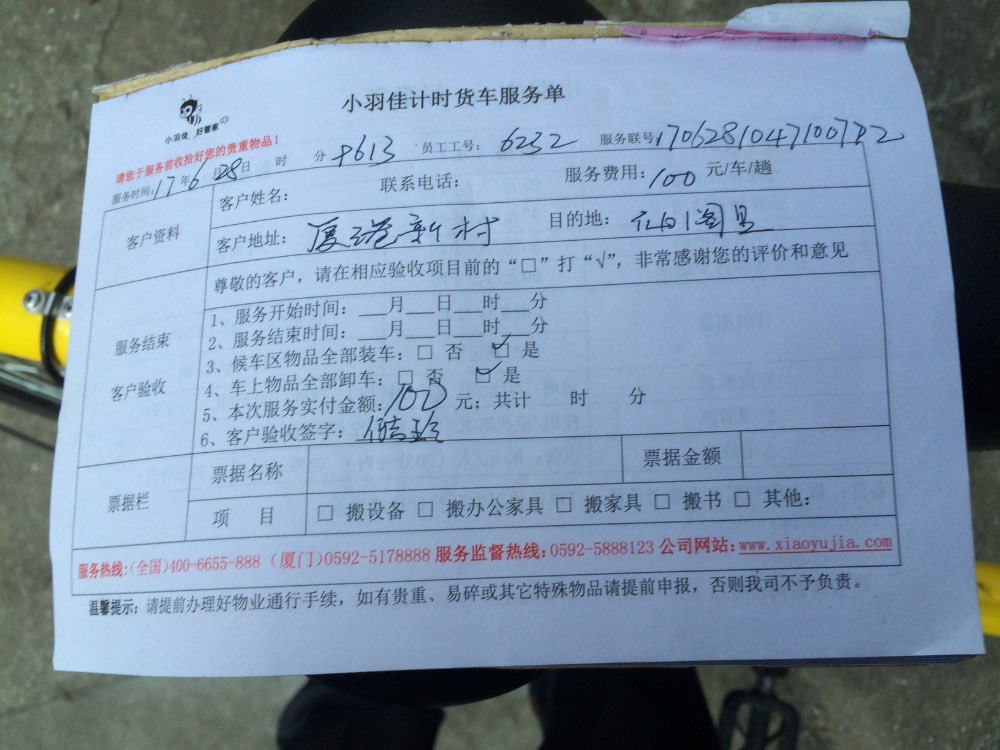 小羽佳计时货车服务单
小羽佳 好管家
请您于服务前收拾好您的贵重物品！
服务时间：17年6月28日 时 分 员工工号：6232 服务联号：
客户资料
客户姓名： 联系电话： 服务费用：100 元/车/趟
客户地址：厦港新村 目的地：
尊敬的客户，请在相应验收项目前的“□”打“√”，非常感谢您的评价和意见
服务结束
客户验收
1、服务开始时间：___月___日___时___分
2、服务结束时间：___月___日___时___分
3、候车区物品全部装车：□ 否 ☑ 是
4、车上物品全部卸车：□ 否 ☑ 是
5、本次服务实付金额：100 元；共计 时 分
6、客户验收签字：
票据栏
票据名称 票据金额
项 目 □ 搬设备 □ 搬办公家具 □ 搬家具 □ 搬书 □ 其他：
服务热线：(全国)400-6655-888 (厦门)0592-5178888 服务监督热线：0592-5888123 公司网站：www.xiaoyujia.com
温馨提示：请提前办理好物业通行手续，如有贵重、易碎或其它特殊物品请提前申报，否则我司不予负责。